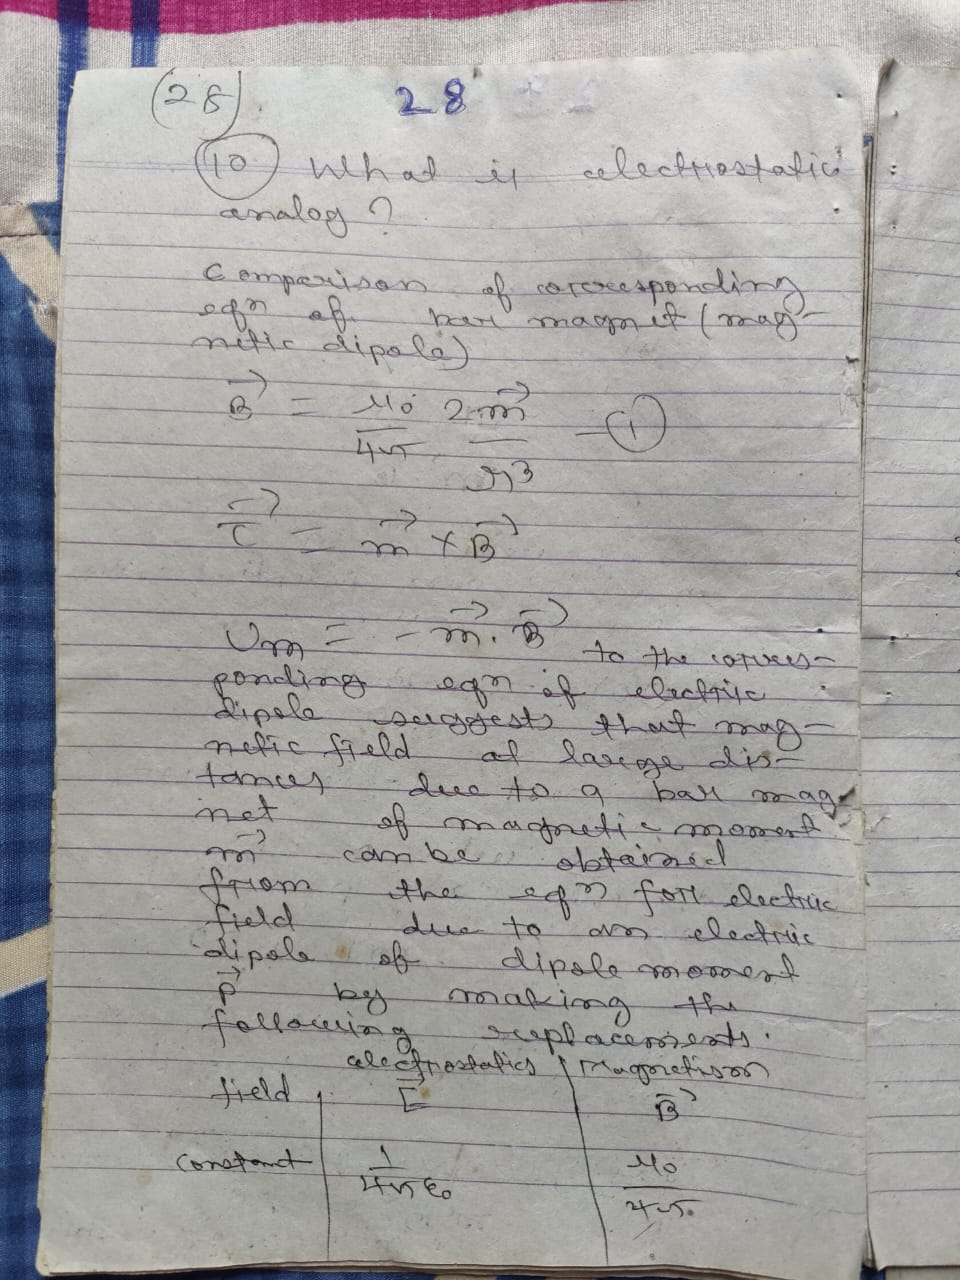 (28)
28
(10) What is electrostatic
analog?
Comparison of corresponding
eqn of bar magnet (mag-
netic dipole)
B⃗ = μ₀/4π 2m⃗/r³ - (1)
τ⃗ = m⃗ × B⃗
Um = - m⃗ . B⃗ to the corres-
ponding eqn of electric
dipole suggests that mag-
netic field at large dis-
tances due to a bar mag-
net of magnetic moment
m⃗ can be obtained
from the eqn for electric
field due to an electric
dipole of dipole moment
p⃗ by making the
following replacements.
electrostatics | Magnetism
field | E⃗ | B⃗
constant | 1/4πε₀ | μ₀/4π